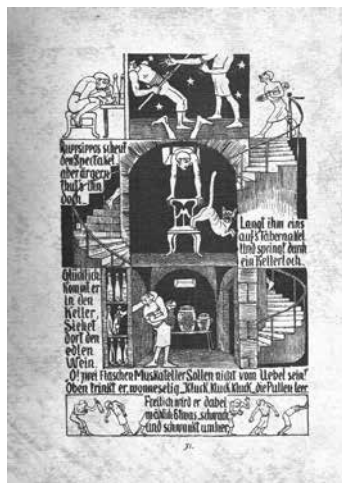 scheut
den Spectakel
aber ärgern
thut's ihn
doch
Langt ihm eins
auf's Tabernakel
Und springt durch
ein Kellerloch.
Glücklich
kommt er
in den
Keller,
Siehet
dort den
edlen
Wein.
O! zwei Flaschen Muskateller Sollen nicht vom Uebel sein!
Oben trinkt er wonneselig „Kluck, Kluck, Kluck“ die Pullen leer
Freilich wird er dabei
mählich Etwas schwach
und schwankt umher.
31.